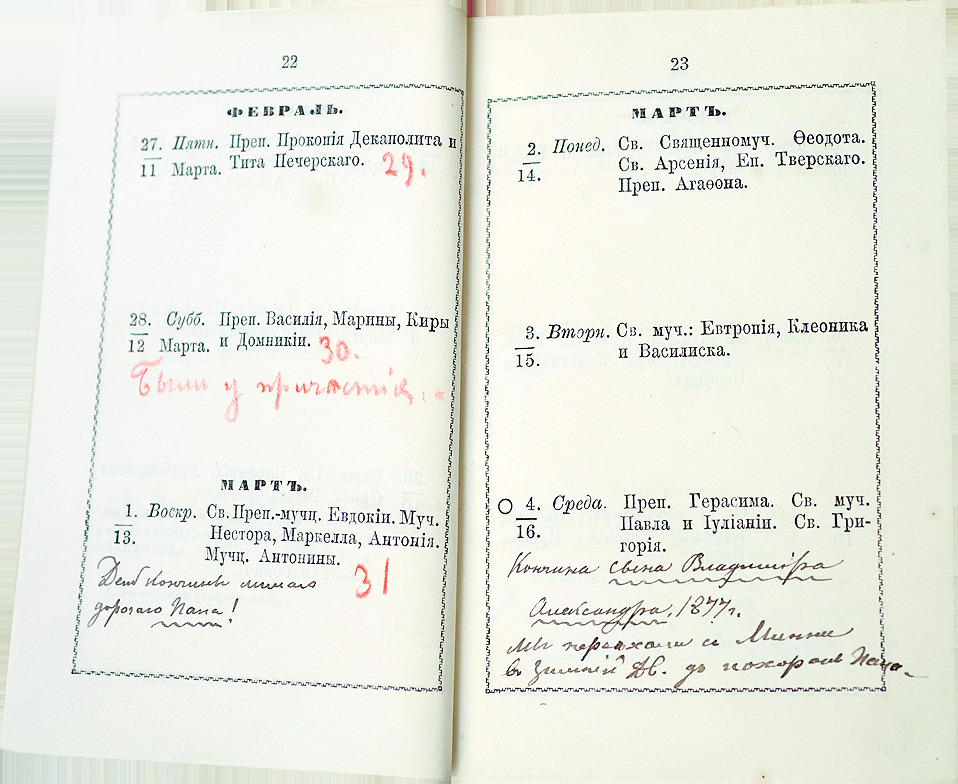 22
ФЕВРАЛЬ.
27. Пятн. Преп. Прокопія Декаполита и
11 Марта. Тита Печерскаго. 29.
28. Субб. Преп. Василія, Марины, Киры
12 Марта. и Домникіи. 30.
Были у причастія.
МАРТЪ.
1. Воскр. Св. Преп.-мучц. Евдокіи. Муч.
13. Нестора, Маркелла, Антонія.
Мучц. Антонины. 31
День кончины милаго
дорогаго Папа!
23
МАРТЪ.
2. Понед. Св. Священномуч. Ѳеодота.
14. Св. Арсенія, Еп. Тверскаго.
Преп. Агаѳона.
3. Вторн. Св. муч.: Евтропія, Клеоника
15. и Василиска.
4. Среда. Преп. Герасима. Св. муч.
16. Павла и Іуліаніи. Св. Гри-
горія.
Кончина сына Владиміра
Александра, 1877 г.
Мы переехали съ Минни
в Зимній Дв. до похоронъ Папа.